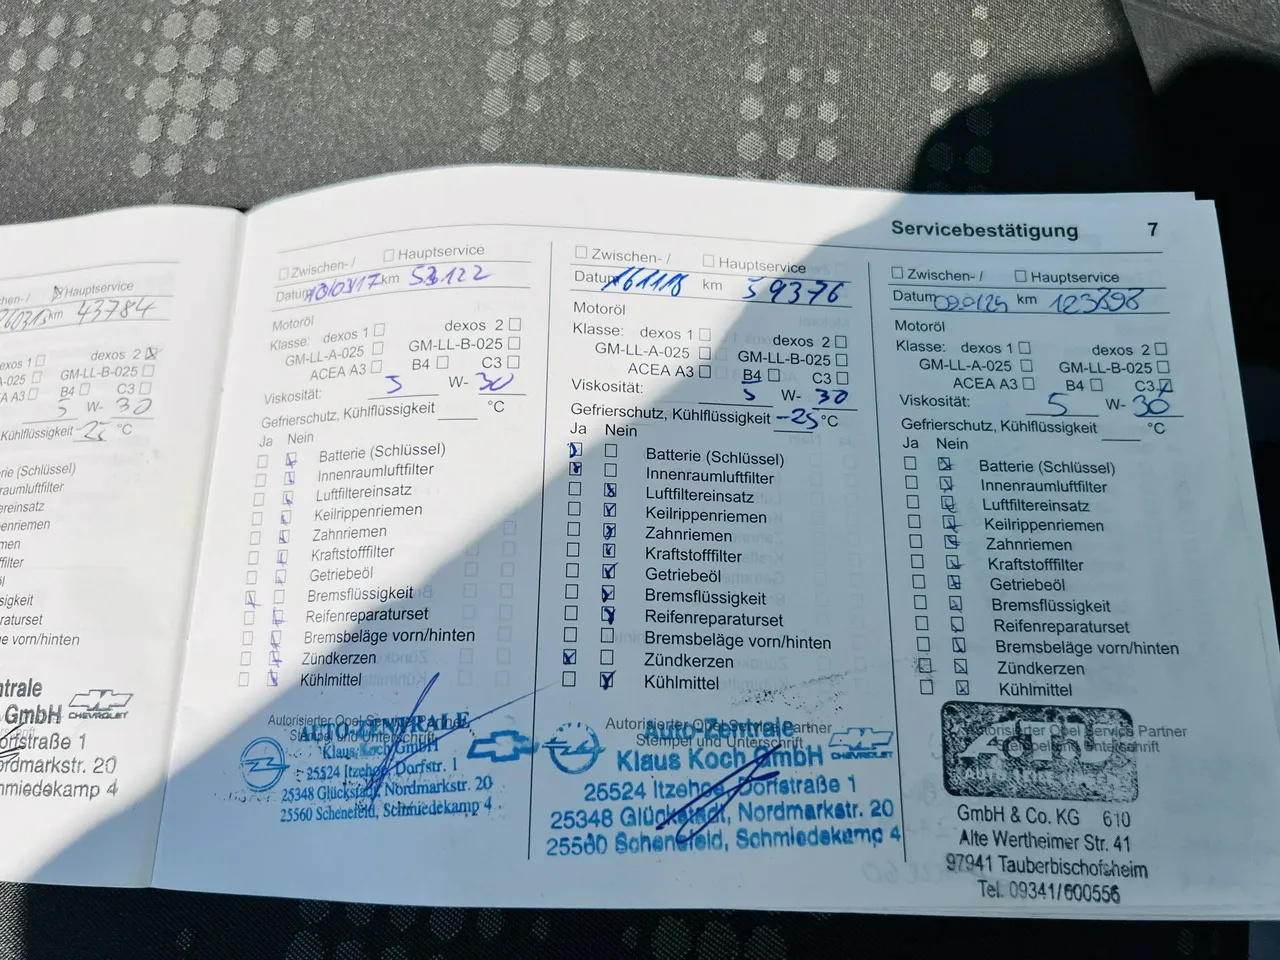 Servicebestätigung 7
chen- / Hauptservice
km 43784
exos 1 dexos 2
A-025 GM-LL-B-025
A3 B4 C3
5 W- 30
Kühlflüssigkeit -25 °C
erie (Schlüssel)
nraumluftfilter
ereinsatz
penriemen
men
ffilter
öl
sigkeit
raturset
äge vorn/hinten
ntrale
GmbH CHEVROLET
orfstraße 1
ordmarkstr. 20
hmiedekamp 4
Zwischen- / Hauptservice
Datum km 53122
Motoröl
Klasse: dexos 1 dexos 2
GM-LL-A-025 GM-LL-B-025
ACEA A3 B4 C3
Viskosität: 5 W- 30
Gefrierschutz, Kühlflüssigkeit °C
Ja Nein
Batterie (Schlüssel)
Innenraumluftfilter
Luftfiltereinsatz
Keilrippenriemen
Zahnriemen
Kraftstofffilter
Getriebeöl
Bremsflüssigkeit
Reifenreparaturset
Bremsbeläge vorn/hinten
Zündkerzen
Kühlmittel
Autorisierter Opel Service Partner
Stempel und Unterschrift
AUTO-ZENTRALE
Klaus Koch GmbH
25524 Itzehoe, Dorfstr. 1
25348 Glückstadt, Nordmarkstr. 20
25560 Schenefeld, Schmiedekamp 4
Zwischen- / Hauptservice
Datum 161118 km 59376
Motoröl
Klasse: dexos 1 dexos 2
GM-LL-A-025 GM-LL-B-025
ACEA A3 B4 C3
Viskosität: 5 W- 30
Gefrierschutz, Kühlflüssigkeit -25 °C
Ja Nein
Batterie (Schlüssel)
Innenraumluftfilter
Luftfiltereinsatz
Keilrippenriemen
Zahnriemen
Kraftstofffilter
Getriebeöl
Bremsflüssigkeit
Reifenreparaturset
Bremsbeläge vorn/hinten
Zündkerzen
Kühlmittel
Autorisierter Opel Service Partner
Stempel und Unterschrift
Auto-Zentrale
Klaus Koch GmbH CHEVROLET
25524 Itzehoe, Dorfstraße 1
25348 Glückstadt, Nordmarkstr. 20
25560 Schenefeld, Schmiedekamp 4
Zwischen- / Hauptservice
Datum km 123898
Motoröl
Klasse: dexos 1 dexos 2
GM-LL-A-025 GM-LL-B-025
ACEA A3 B4 C3
Viskosität: 5 W- 30
Gefrierschutz, Kühlflüssigkeit °C
Ja Nein
Batterie (Schlüssel)
Innenraumluftfilter
Luftfiltereinsatz
Keilrippenriemen
Zahnriemen
Kraftstofffilter
Getriebeöl
Bremsflüssigkeit
Reifenreparaturset
Bremsbeläge vorn/hinten
Zündkerzen
Kühlmittel
Autorisierter Opel Service Partner
Stempel und Unterschrift
GmbH & Co. KG 610
Alte Wertheimer Str. 41
97941 Tauberbischofsheim
Tel. 09341/600556